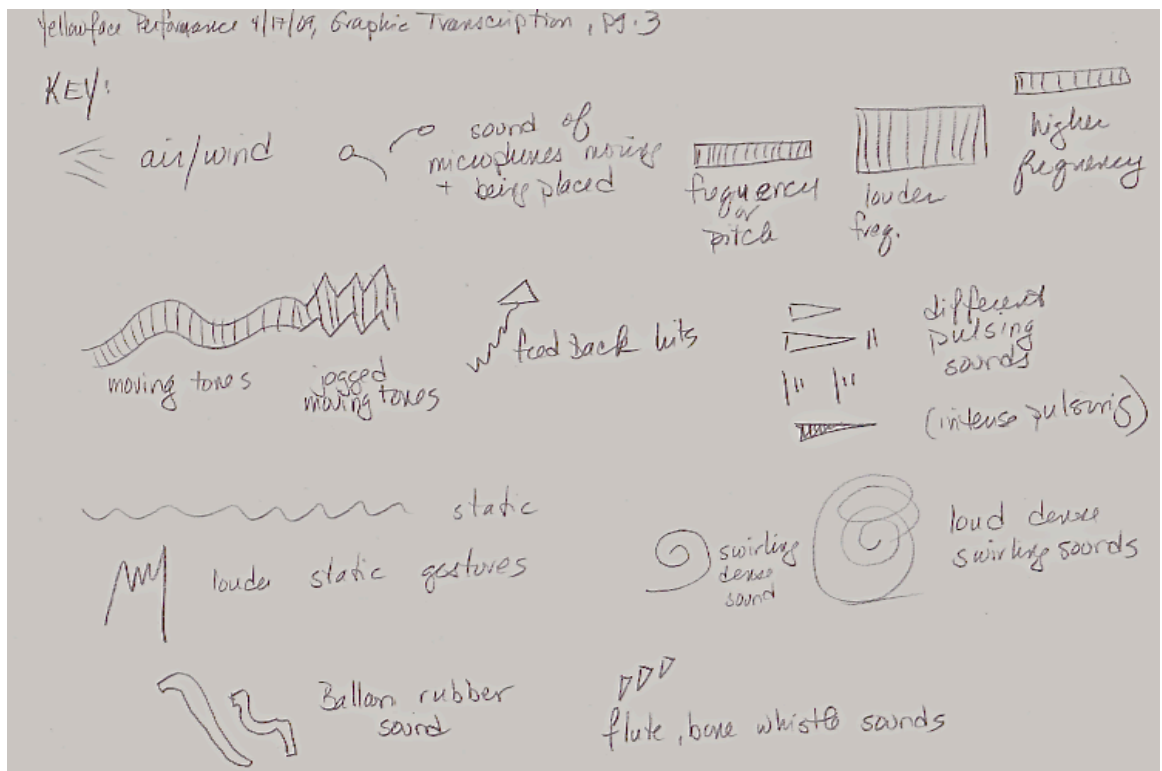 Yellowface Performance 4/17/09, Graphic Transcription, pg. 3
KEY:
air/wind
sound of
microphones moving
+ being placed
frequency
or
pitch
louder
freq.
higher
frequency
moving tones
jagged
moving tones
feed back hits
different
pulsing
sounds
(intense pulsing)
static
louder static gestures
swirling
dense
sound
loud dense
swirling sounds
Ballan rubber
sound
flute, bone whistle sounds